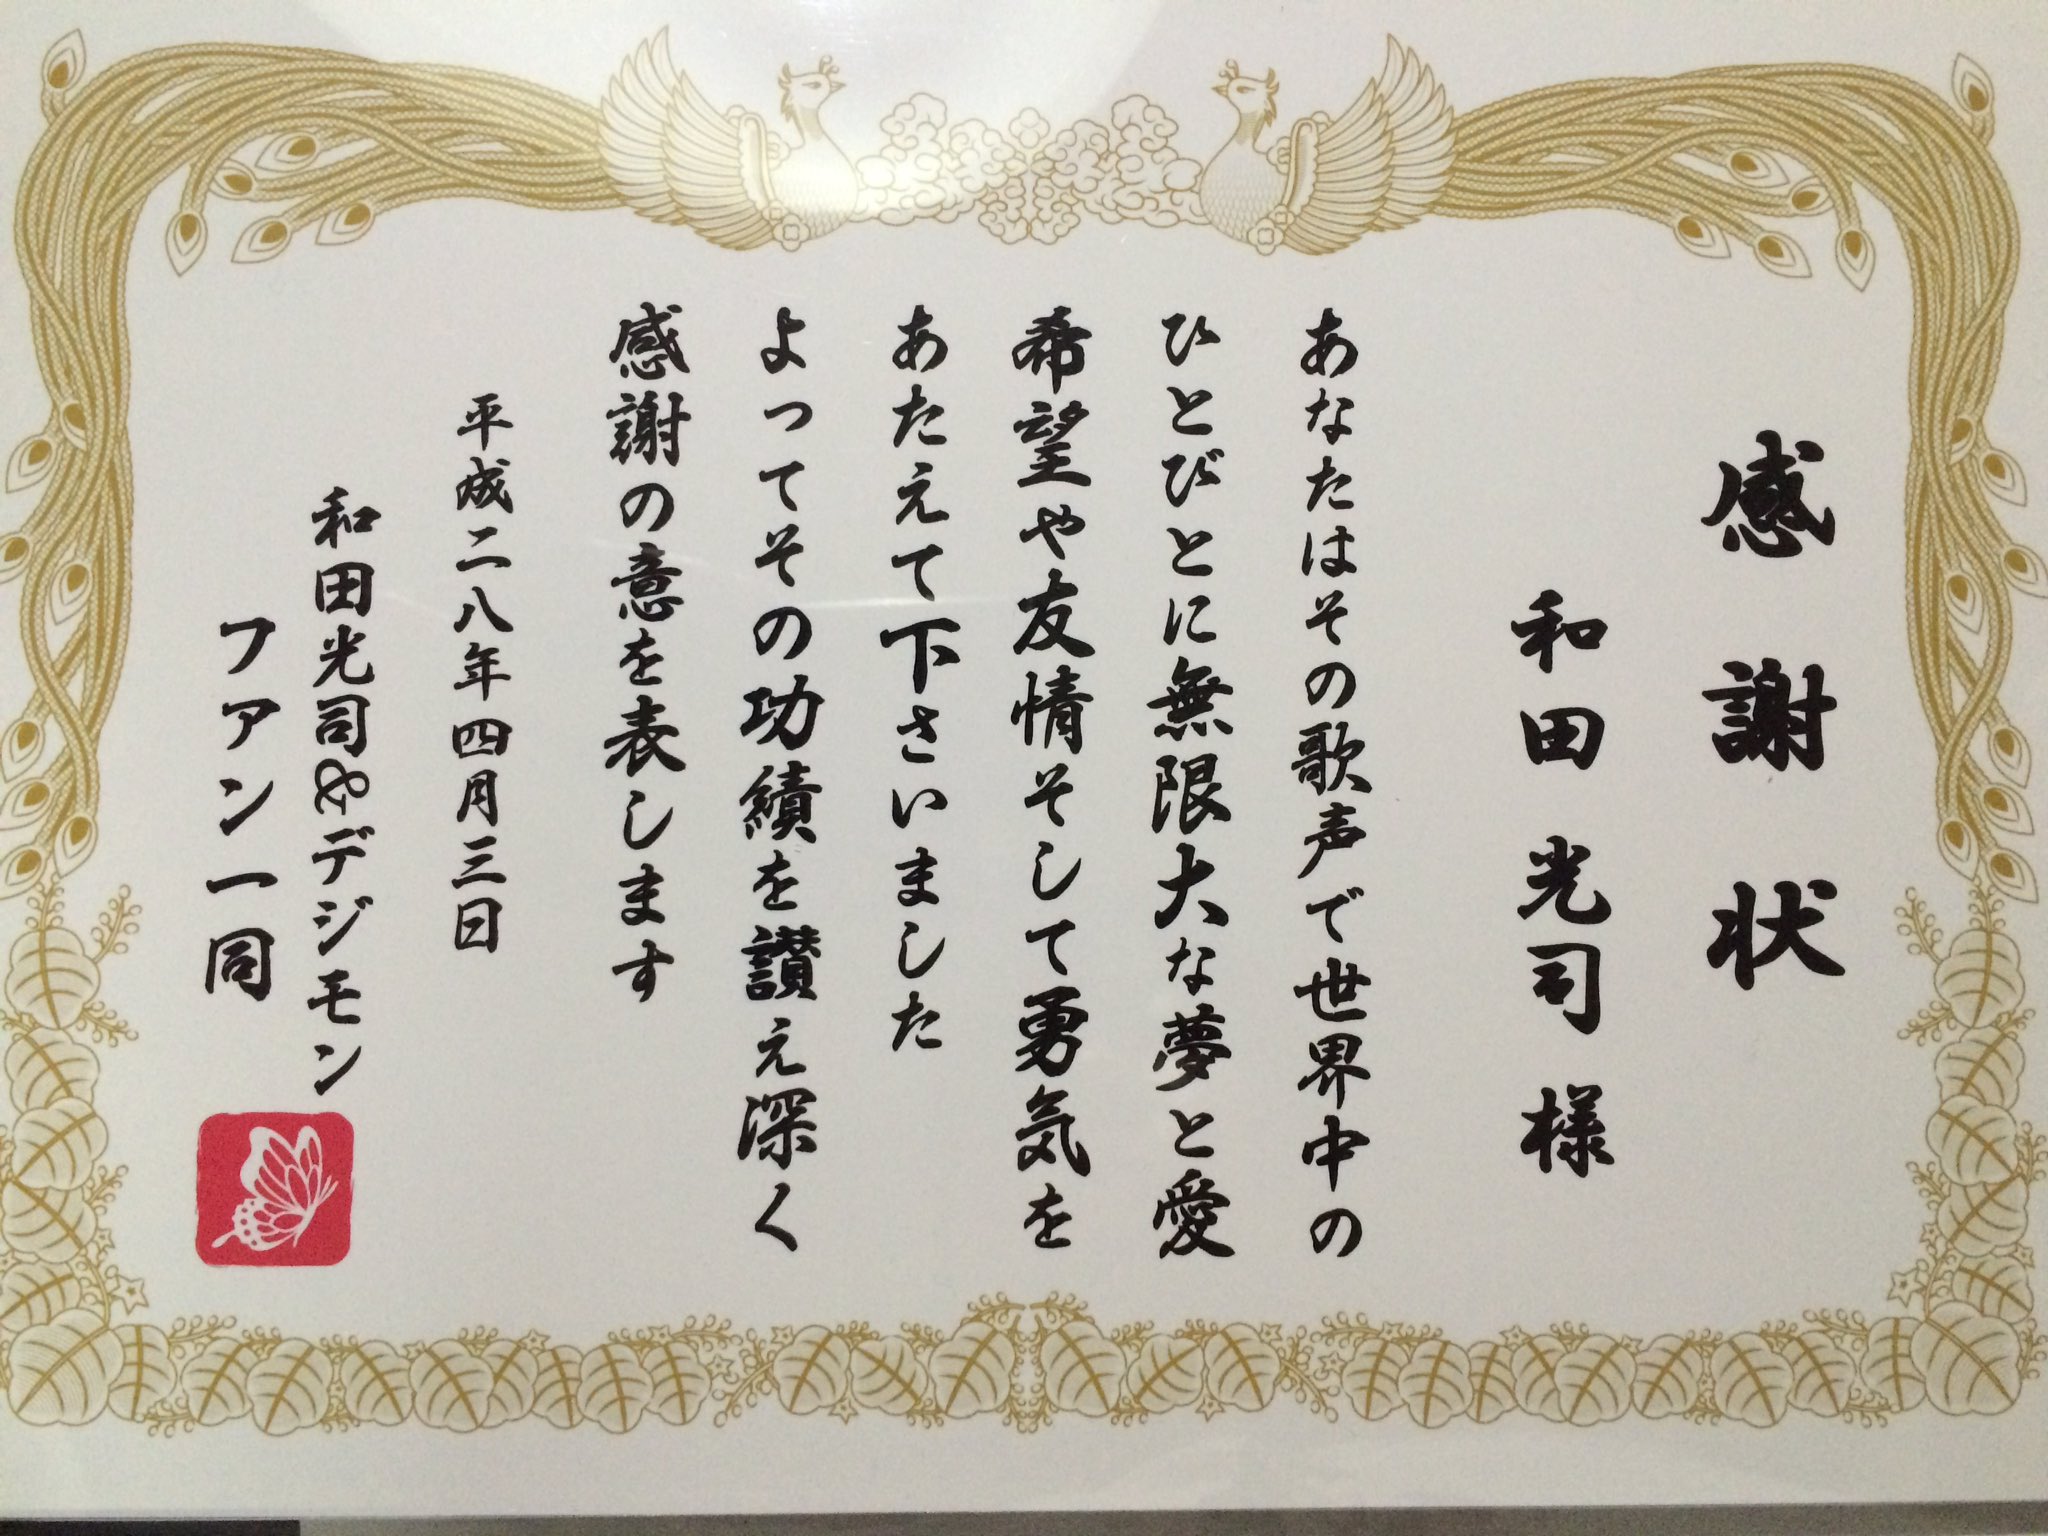 感謝状
和田光司様
あなたはその歌声で世界中の
ひとびとに無限大な夢と愛
希望や友情そして勇気を
あたえて下さいました
よってその功績を讃え深く
感謝の意を表します
平成二八年四月三日
和田光司&デジモン
ファン一同